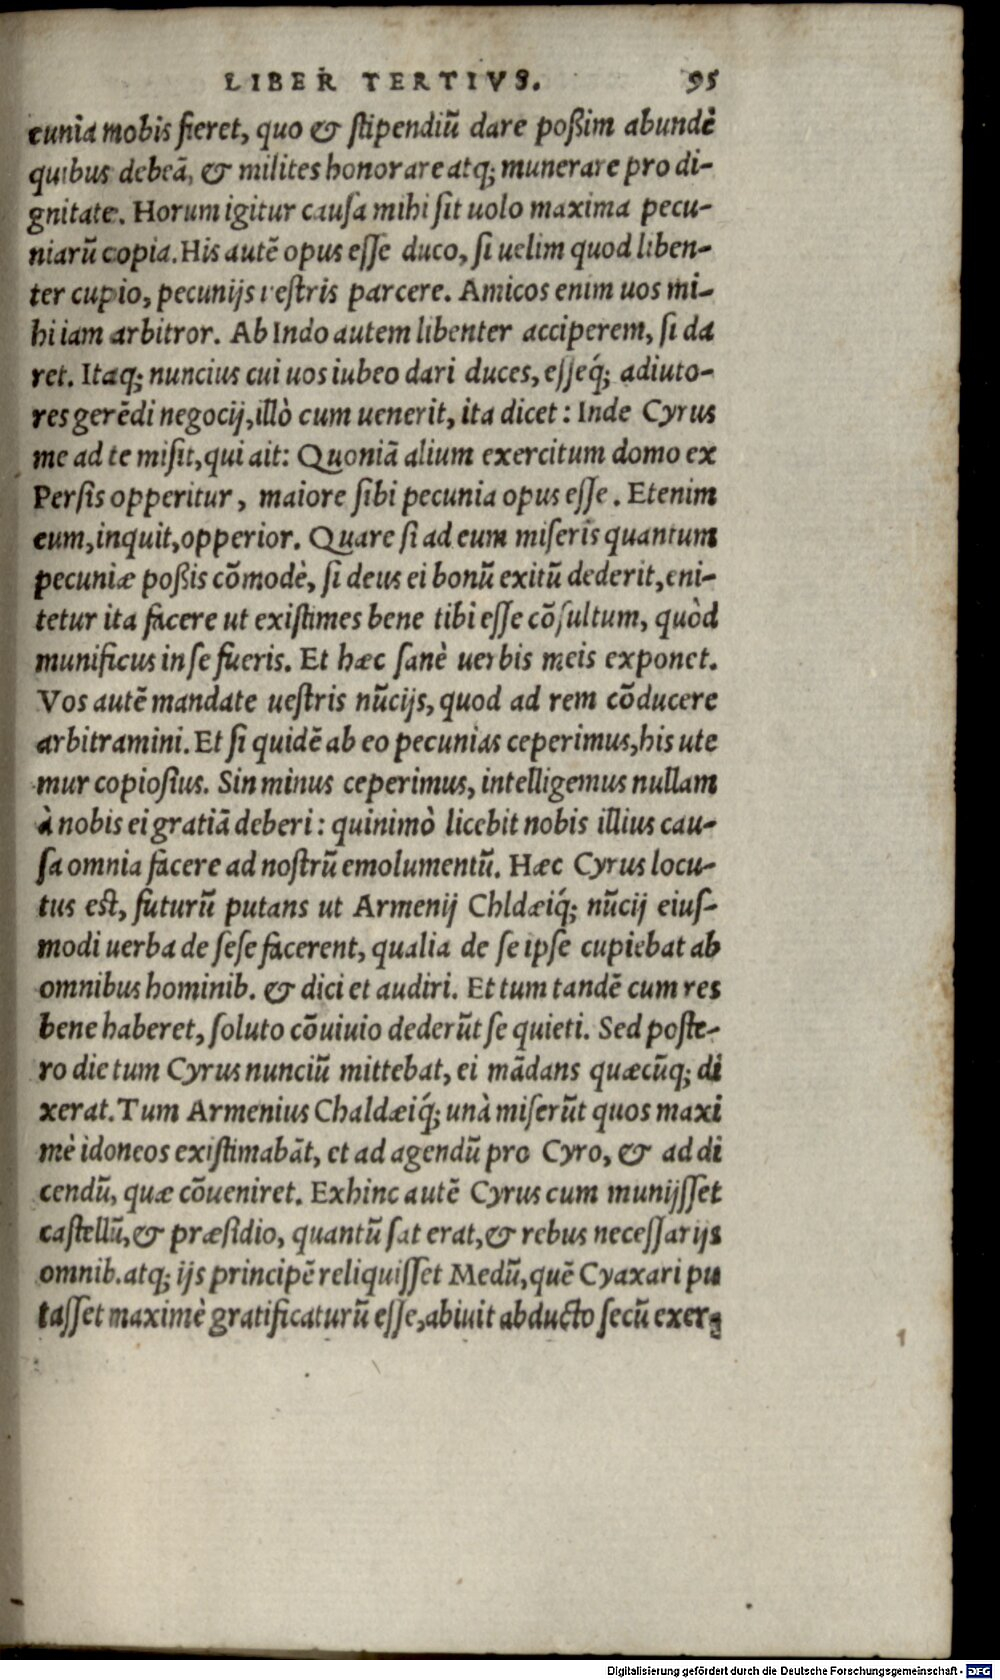 LIBER TERTIVS. 95
cunia mobis fieret, quo & stipendiũ dare poßim abundè
quibus debeã, & milites honorare atq; munerare pro di-
gnitate. Horum igitur causa mihi sit uolo maxima pecu-
niarũ copia. His autẽ opus esse duco, si uelim quod liben-
ter cupio, pecunijs uestris parcere. Amicos enim uos mi-
hi iam arbitror. Ab Indo autem libenter acciperem, si da
ret. Itaq; nuncius cui uos iubeo dari duces, esseq́; adiuto-
res gerẽdi negocij, illò cum uenerit, ita dicet: Inde Cyrus
me ad te misit, qui ait: Quoniã alium exercitum domo ex
Persis opperitur, maiore sibi pecunia opus esse. Etenim
eum, inquit, opperior. Quare si ad eum miseris quantum
pecuniæ poßis cõmodè, si deus ei bonũ exitũ dederit, eni-
tetur ita facere ut existimes bene tibi esse cõsultum, quòd
munificus in se fueris. Et hæc sanè uerbis meis exponet.
Vos autẽ mandate uestris nũcijs, quod ad rem cõducere
arbitramini. Et si quidẽ ab eo pecunias ceperimus, his ute
mur copiosius. Sin minus ceperimus, intelligemus nullam
à nobis ei gratiã deberi: quinimò licebit nobis illius cau-
sa omnia facere ad nostrũ emolumentũ. Hæc Cyrus locu-
tus est, futurũ putans ut Armenij Chldæiq́; nũcij eius-
modi uerba de sese facerent, qualia de se ipse cupiebat ab
omnibus hominib. & dici et audiri. Et tum tandẽ cum res
bene haberet, soluto cõuiuio dederũt se quieti. Sed poste-
ro die tum Cyrus nunciũ mittebat, ei mãdans quæcũq; di
xerat. Tum Armenius Chaldæiq́; unà miserũt quos maxi
mè idoneos existimabãt, et ad agendũ pro Cyro, & ad di
cendũ, quæ cõueniret. Exhinc autẽ Cyrus cum munijsset
castellũ, & præsidio, quantũ sat erat, & rebus necessarijs
omnib. atq; ijs principẽ reliquisset Medũ, quẽ Cyaxari pu
tasset maximè gratificaturũ esse, abiuit abducto secũ exer-
Digitalisierung gefördert durch die Deutsche Forschungsgemeinschaft - DFG